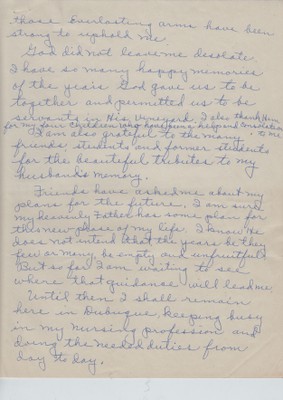 those Everlasting arms have been
strong to uphold me.
God did not leave me desolate.
I have so many happy memories
of the years God gave us to be
together and permitted us to be
servants in His Vineyard. I also thank Him
for my four children who have been a help and consolation
to me.
I am also grateful to the many
friends, students and former students
for the beautiful tributes to my
husband's memory.
Friends have asked me about my
plans for the future. I am sure
my heavenly Father has some plan for
this new phase of my life. I know He
does not intend that the years be they
few or many, be empty and unfruitful.
But so far I am waiting to see
where that guidance will lead me.
Until then I shall remain
here in Dubuque, keeping busy
in my nursing profession and
doing the needed duties from
day to day.